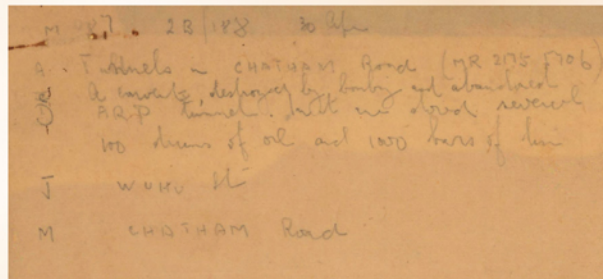 M 987 2B/188 30 Apr
A. Tunnels in CHATHAM Road (MR 2175 5706)
A concrete, destroyed by bombing and abandoned
ARP tunnel. in it are stored several
100 drums of oil and 1000 bars of
J WUHU St
M CHATHAM Road